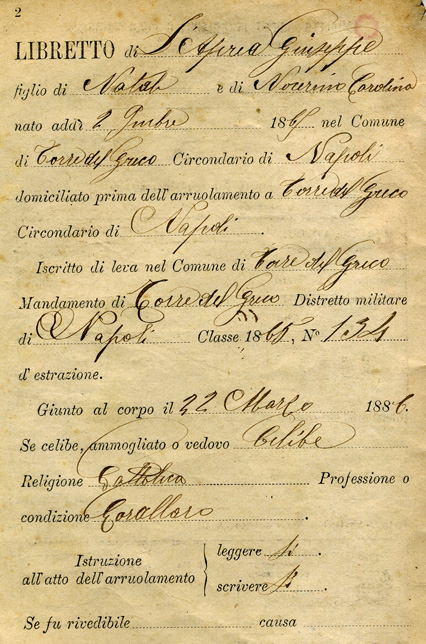 2
LIBRETTO di D'Aprea Giuseppe
figlio di Natale e di Nocerino Carolina
nato addì 2 9mbre 1865 nel Comune
di Torre del Greco Circondario di Napoli
domiciliato prima dell'arruolamento a Torre del Greco
Circondario di Napoli.
Iscritto di leva nel Comune di Torre del Greco
Mandamento di Torre del Greco Distretto militare
di Napoli Classe 1865, N° 134
d'estrazione.
Giunto al corpo il 22 Marzo 1886.
Se celibe, ammogliato o vedovo Celibe
Religione Cattolica Professione o
condizione Corallaro.
Istruzione all'atto dell'arruolamento
leggere
scrivere
Se fu rivedibile causa